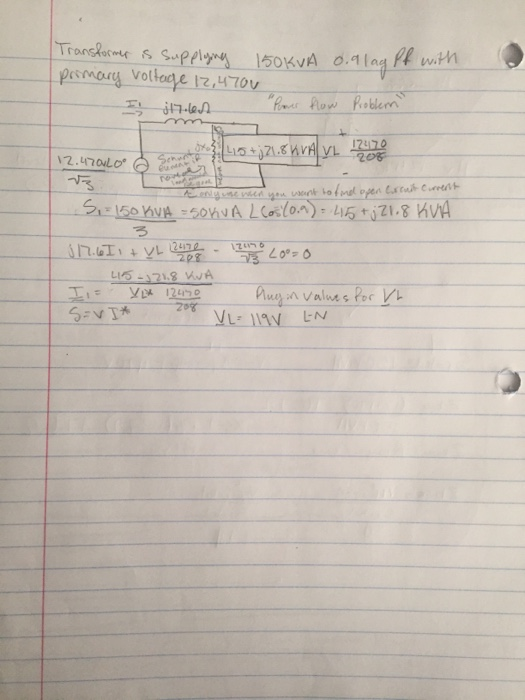 Transformer is supplying 150KVA 0.9 lag Pf with
primary voltage 12,470v
"Power flow Problem"
I1 j17.6Ω
+
45+j21.8 KVA VL 12470/208
12.470∠0°/√3
-
only use when you want to find open circuit current
S1 = 150 KVA/3 = 50 KVA ∠Cos⁻¹(0.9) = 45 + j21.8 KVA
j17.6I1 + VL 12470/208 - 12470/√3 ∠0° = 0
I1 = 45-j21.8 KVA / VL* 12470/208 Plug in values for VL
S=VI* VL= 119V L-N